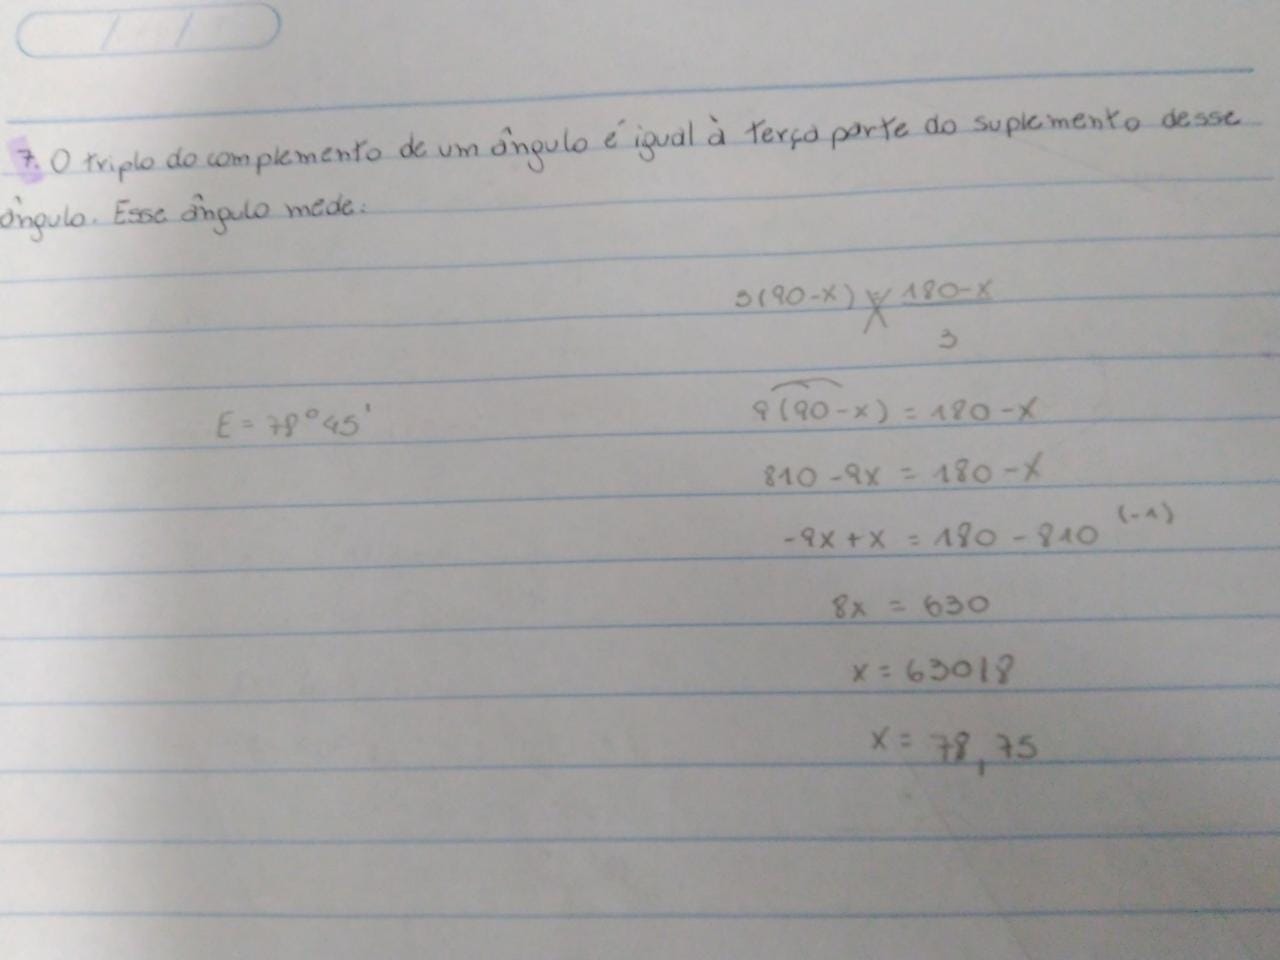 7. O triplo do complemento de um ângulo é igual à terça parte do suplemento desse
ângulo. Esse ângulo mede:
3(90-x) = 180-x
3
9(90-x) = 180-x
E = 78°45'
810 - 9x = 180 - x
-9x + x = 180 - 810 (-1)
8x = 630
x = 630|8
x = 78,75